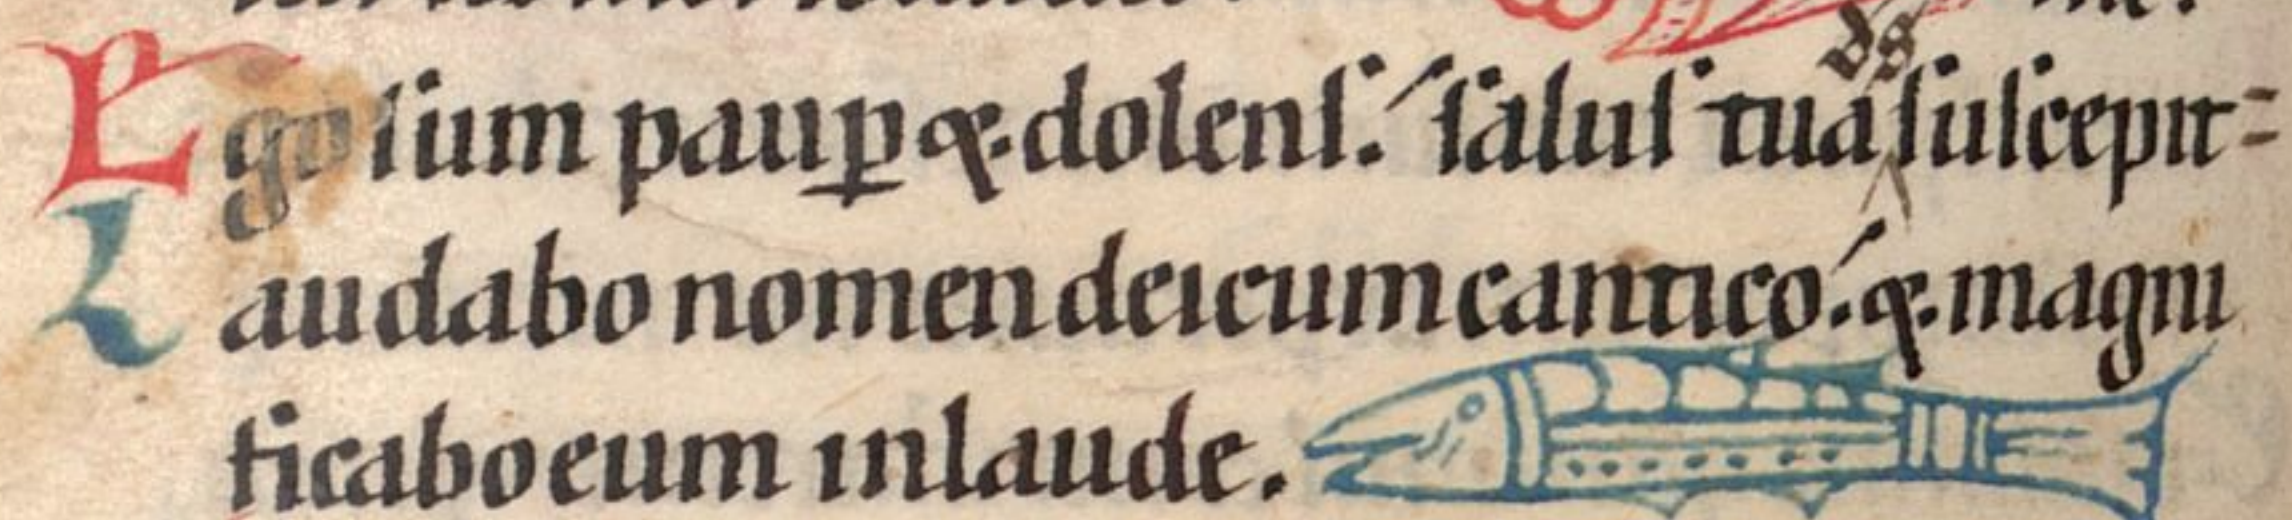 me.
Ego sum paup̲ q̵. dolens. salus tua ds suscepit
Laudabo nomen dei cum cantico. q̵. magni
ficabo eum in laude.